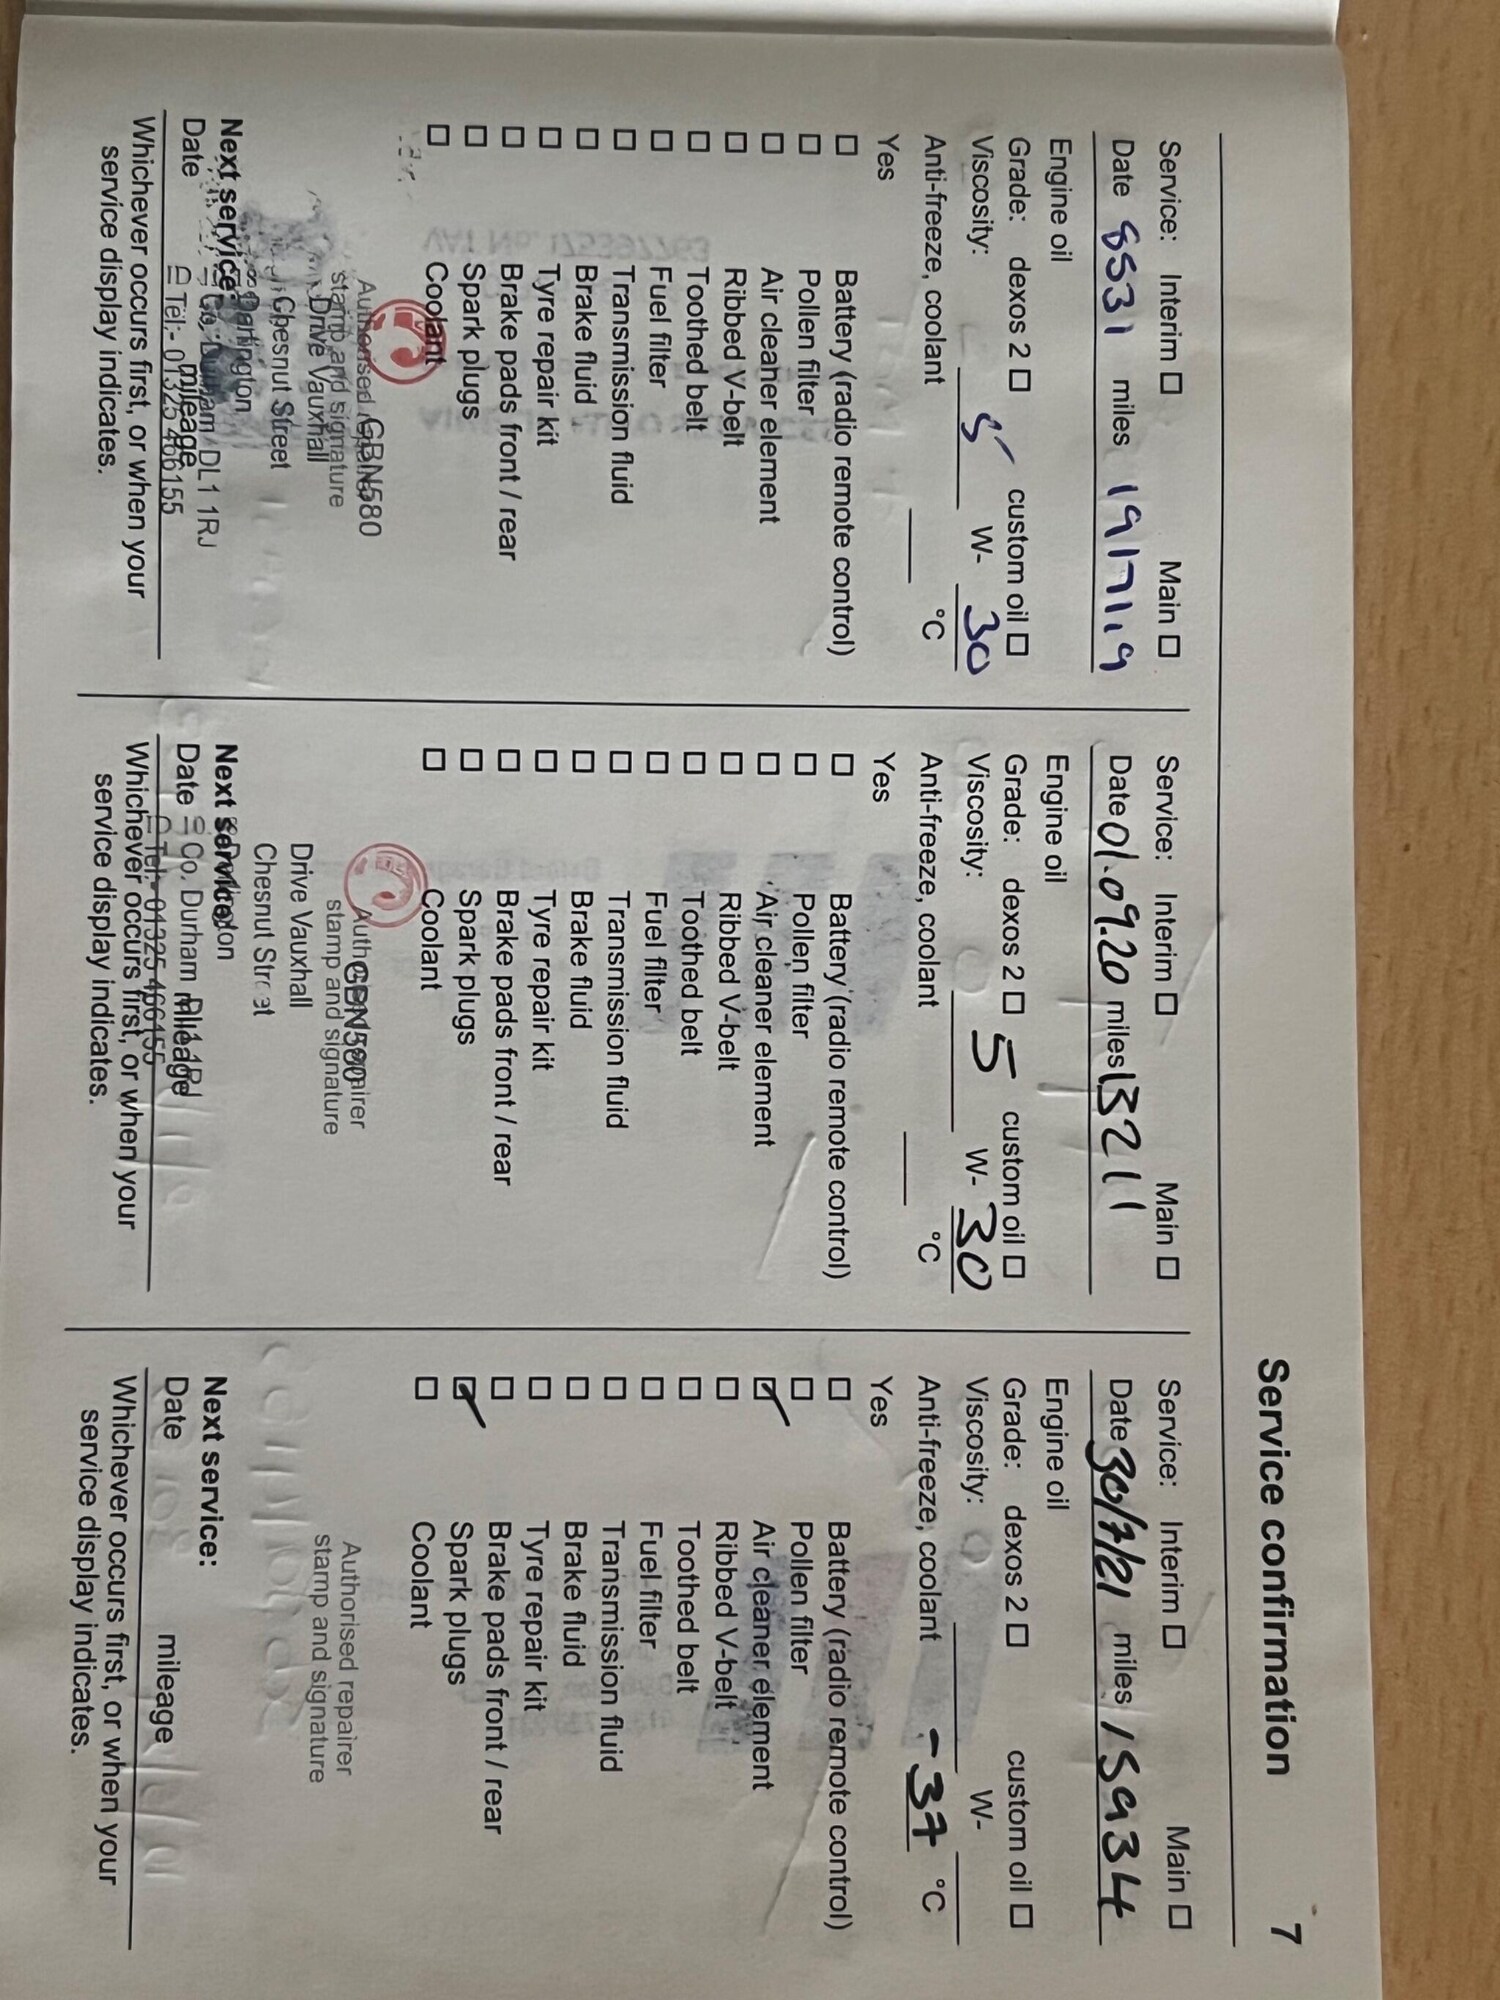 Service confirmation
7
Service: Interim ☐ Main ☐
Date 8531 miles 19/7/19
Engine oil
Grade: dexos 2 ☐ custom oil ☐
Viscosity: 5 W- 30
Anti-freeze, coolant °C
Yes
☐ Battery (radio remote control)
☐ Pollen filter
☐ Air cleaner element
☐ Ribbed V-belt
☐ Toothed belt
☐ Fuel filter
☐ Transmission fluid
☐ Brake fluid
☐ Tyre repair kit
☐ Brake pads front / rear
☐ Spark plugs
☐ Coolant
GBN580
Authorised
stamp and signature
Drive Vauxhall
Chesnut Street
Darlington
Next service:
Durham DL1 1RJ
Date mileage
Tel:- 01325 466155
Whichever occurs first, or when your
service display indicates.
Service: Interim ☐ Main ☐
Date 01.09.20 miles 13211
Engine oil
Grade: dexos 2 ☐ custom oil ☐
Viscosity: 5 W- 30
Anti-freeze, coolant °C
Yes
☐ Battery (radio remote control)
☐ Pollen filter
☐ Air cleaner element
☐ Ribbed V-belt
☐ Toothed belt
☐ Fuel filter
☐ Transmission fluid
☐ Brake fluid
☐ Tyre repair kit
☐ Brake pads front / rear
☐ Spark plugs
☐ Coolant
GBN580
stamp and signature
Drive Vauxhall
Chesnut Street
Next service:
Date mileage
Co. Durham DL1 1RJ
Tel:- 01325 466155
Whichever occurs first, or when your
service display indicates.
Service: Interim ☐ Main ☐
Date 30/7/21 miles 15934
Engine oil
Grade: dexos 2 ☐ custom oil ☐
Viscosity: W-
Anti-freeze, coolant -37 °C
Yes
☐ Battery (radio remote control)
☐ Pollen filter
☑ Air cleaner element
☐ Ribbed V-belt
☐ Toothed belt
☐ Fuel filter
☐ Transmission fluid
☐ Brake fluid
☐ Tyre repair kit
☐ Brake pads front / rear
☑ Spark plugs
☐ Coolant
Authorised repairer
stamp and signature
Next service:
Date mileage
Whichever occurs first, or when your
service display indicates.